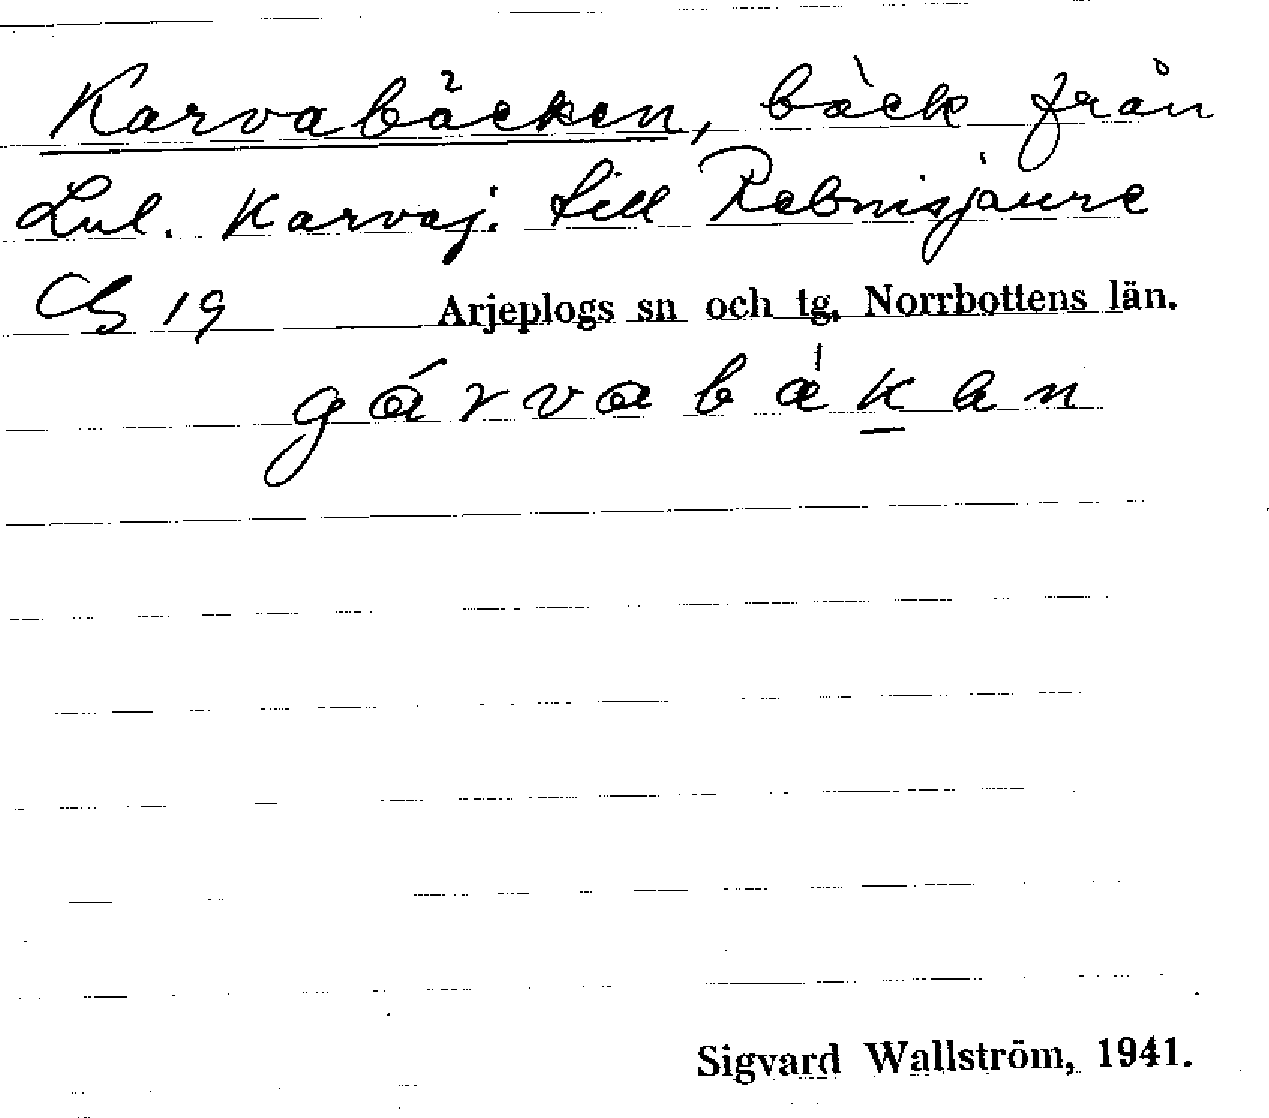 Karvabäcken, bäck från
Lul. Karvaj. till Rebnisjaure
Cb 19 Arjeplogs sn och tg. Norrbottens län.
gárvabäkan
Sigvard Wallström, 1941.